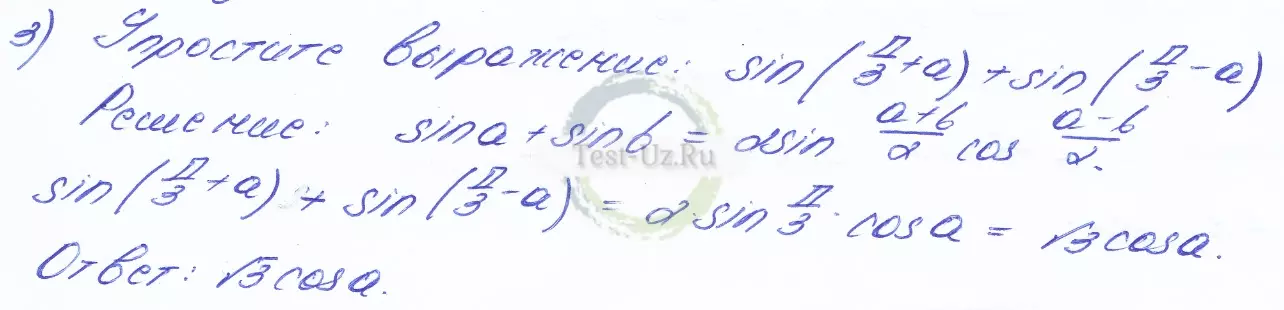 3) Упростите выражение: sin(π/3+a)+sin(π/3-a)
Решение: sina+sinb = 2sin (a+b)/2 cos (a-b)/2.
Test-Uz.Ru
sin(π/3+a)+sin(π/3-a)=2·sin π/3·cosa=√3cosa.
Ответ: √3cosa.